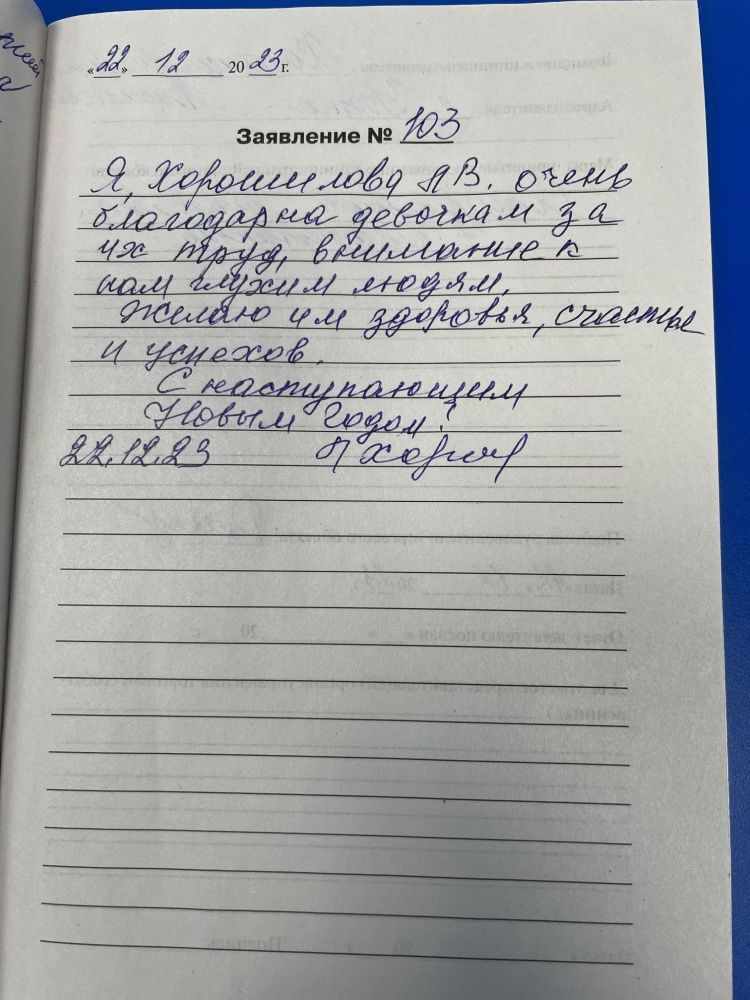 «22» 12 2023 г.
Заявление № 103
Я, Хорошилова Л В. очень
благодарна девочкам за
их труд, внимание к
нам глухим людям.
Желаю им здоровья, счастье
и успехов.
С наступающим
Новым Годом!
22.12.23